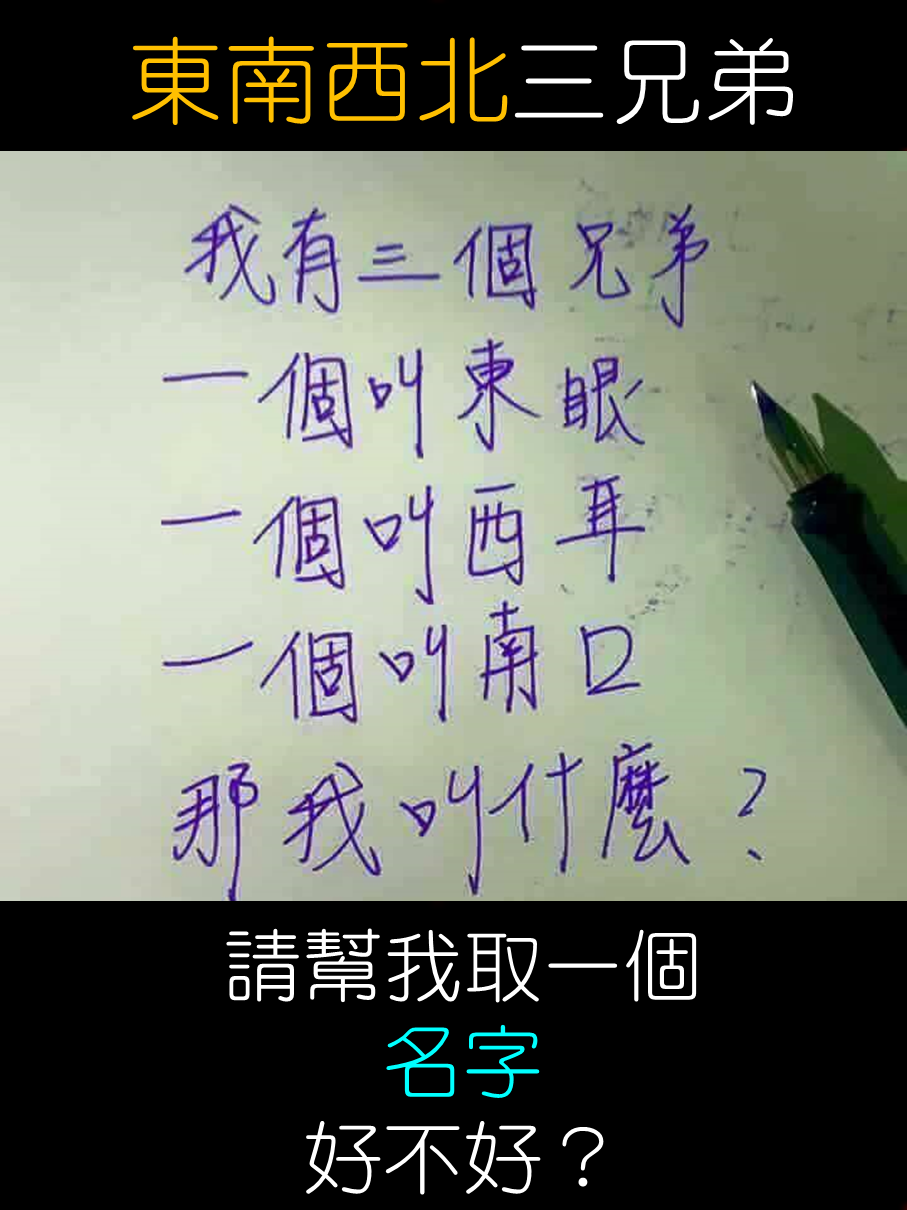 東南西北三兄弟
我有三個兄弟
一個叫東眼
一個叫西耳
一個叫南口
那我叫什麼?
請幫我取一個
名字
好不好？